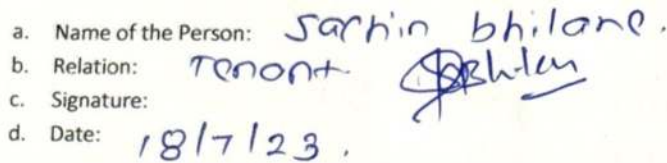 a. Name of the Person: Sachin bhilane.
b. Relation: Tenont
c. Signature:
d. Date: 18/7/23.